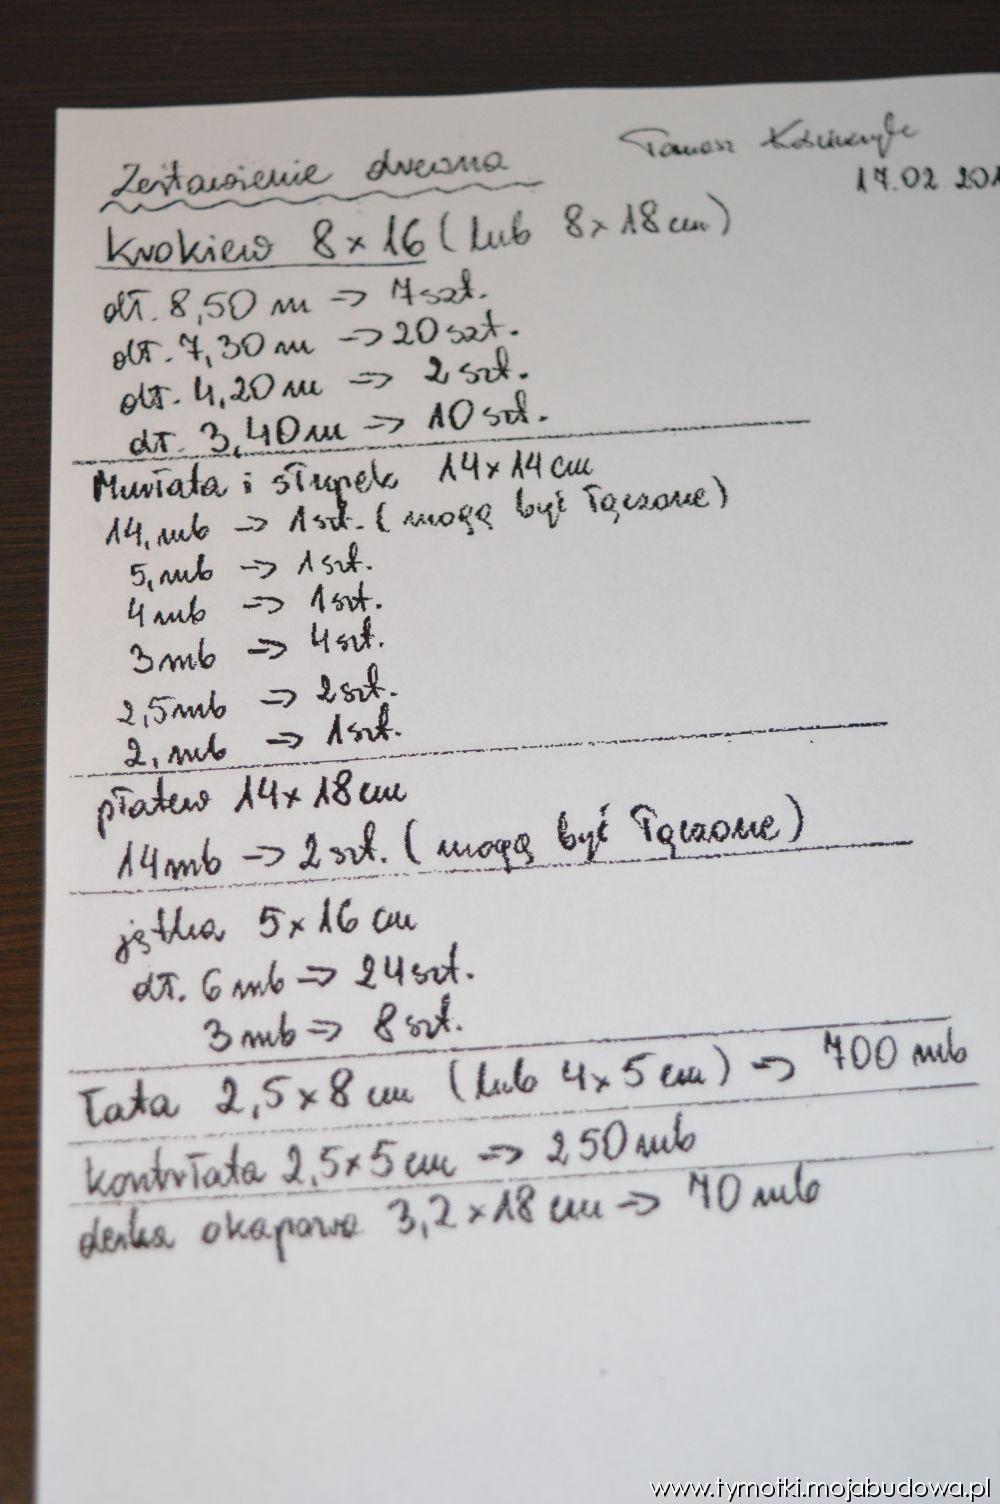 Zestawienie drewna
Tomasz
17.02.201
krokiew 8x16 (lub 8x18cm)
dł. 8,50 m => 7szt.
dł. 7,30m => 20szt.
dł. 4,20m => 2szt.
dł. 3,40m => 10szt.
Murłata i słupek 14x14cm
14,mb => 1szt. (mogą być łączone)
5,mb => 1szt.
4mb => 1szt.
3mb => 4szt.
2,5mb => 2szt.
2,mb => 1szt.
płatew 14x18cm
14mb => 2szt. (mogą być łączone)
jętka 5x16cm
dł. 6mb => 24szt.
3mb => 8szt.
łata 2,5x8cm (lub 4x5cm) => 700mb
kontrłata 2,5x5cm => 250mb
deska okapowa 3,2x18cm => 70mb
www.tymotki.mojabudowa.pl